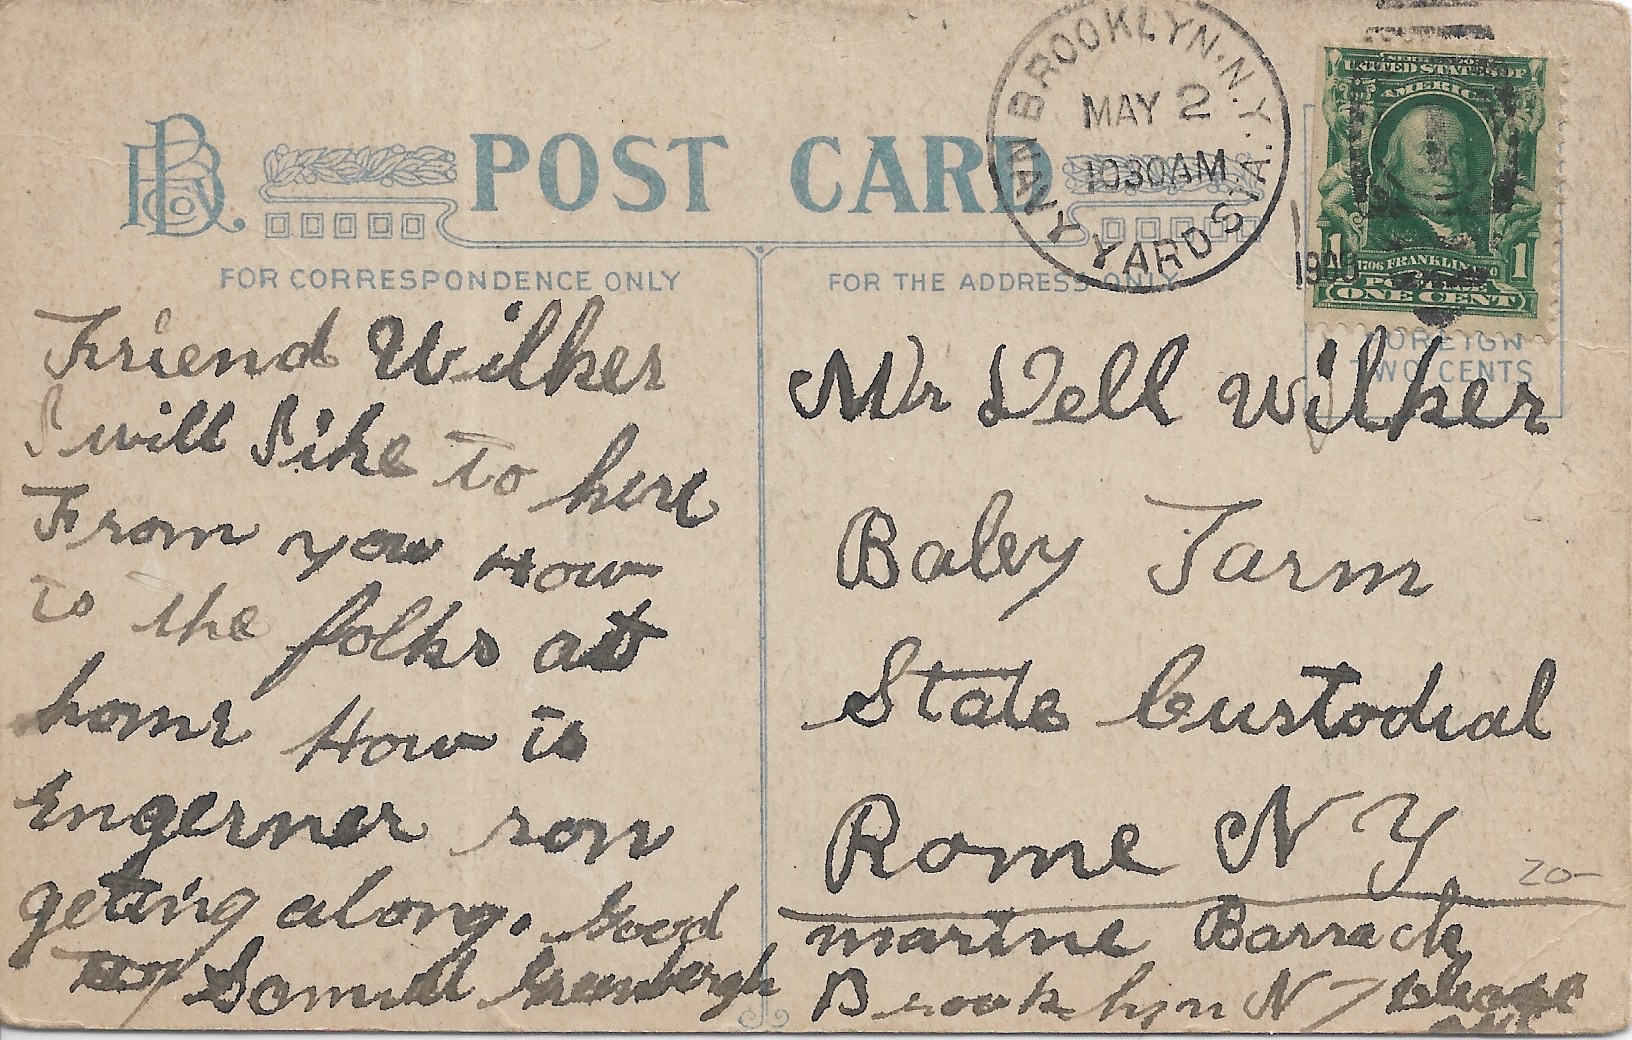 POST CARD
BROOKLYN, N.Y.
NAVY YARD STA.
MAY 2
1030AM
UNITED STATES OF
AMERICA
1706 FRANKLIN
1 1
ONE CENT
FOREIGN
TWO CENTS
FOR CORRESPONDENCE ONLY
Friend Wilker
I will Like to here
From you How
is the folks at
home How is
Engerner ron
geting along. Good
By Samuel Greenbergh
FOR THE ADDRESS ONLY
Mr Dell Wilker
Baley Farm
State Custodial
Rome N Y
20-
marine Barrack
Brooklyn N Y